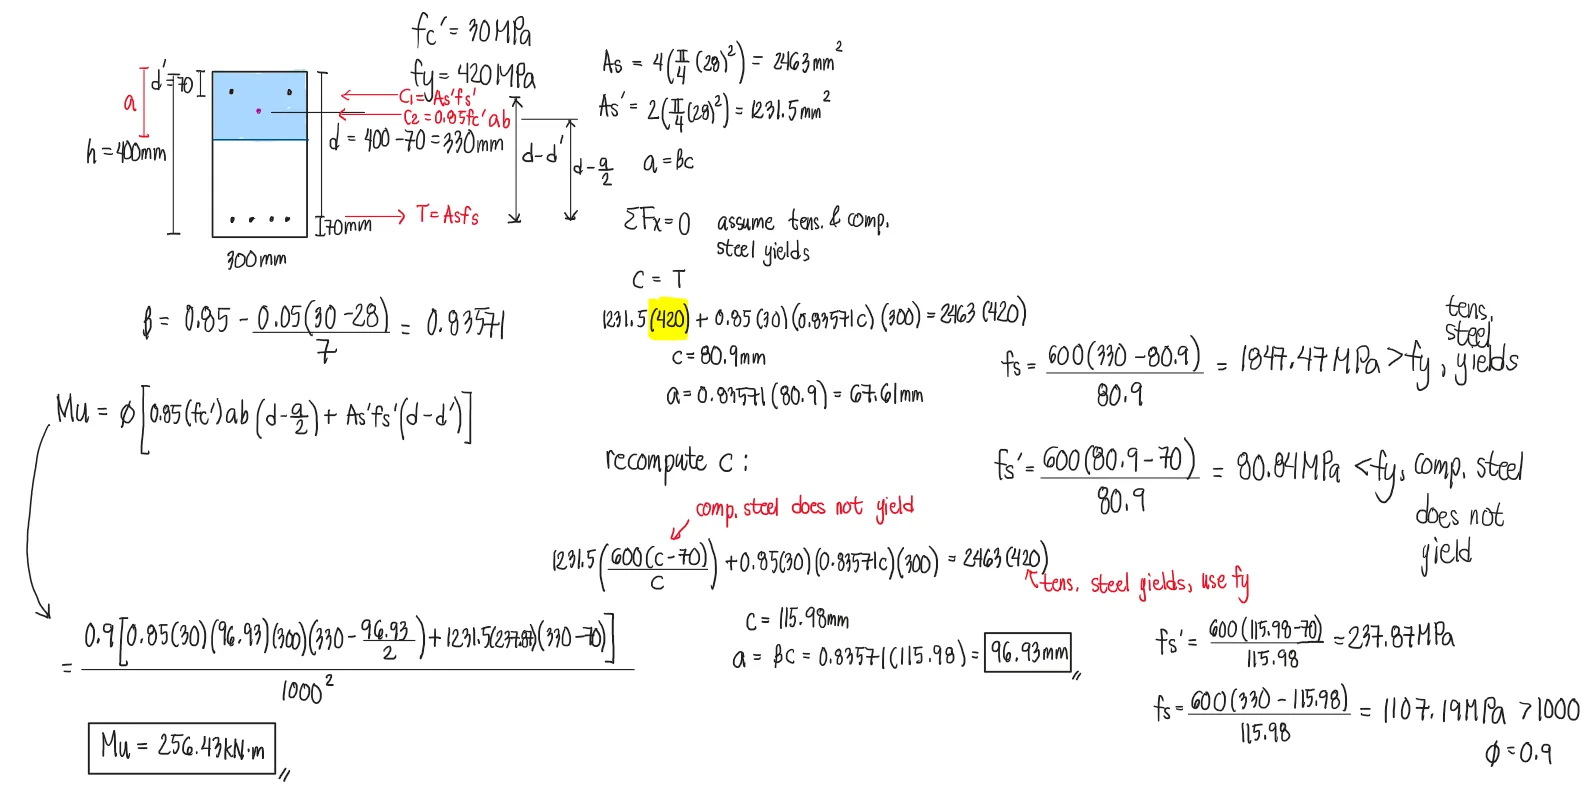 fc' = 30MPa
fy = 420MPa
d' = 70
a
h = 400mm
C1 = As'fs'
C2 = 0.85fc'ab
d = 400 - 70 = 330mm
d - d'
d - a/2
T = Asfs
70mm
300mm
As = 4(π/4 (28)²) = 2463mm²
As' = 2(π/4 (28)²) = 1231.5mm²
a = βc
ΣFx = 0 assume tens. & comp. steel yields
C = T
1231.5(420) + 0.85(30)(0.83571c)(300) = 2463(420)
c = 80.9mm
a = 0.83571(80.9) = 67.61mm
β = 0.85 - 0.05(30-28)/7 = 0.83571
Mu = φ[0.85(fc')ab(d - a/2) + As'fs'(d - d')]
fs = 600(330 - 80.9)/80.9 = 1847.47MPa > fy, tens. steel yields
fs' = 600(80.9 - 70)/80.9 = 80.84MPa < fy, comp. steel does not yield
recompute c:
comp. steel does not yield
1231.5(600(c-70)/c) + 0.85(30)(0.83571c)(300) = 2463(420)
tens. steel yields, use fy
c = 115.98mm
a = βc = 0.83571(115.98) = 96.93mm
fs' = 600(115.98-70)/115.98 = 237.87MPa
fs = 600(330 - 115.98)/115.98 = 1107.19MPa > 1000
φ = 0.9
= 0.9[0.85(30)(96.93)(300)(330 - 96.93/2) + 1231.5(237.87)(330-70)]/1000²
Mu = 256.43kN·m